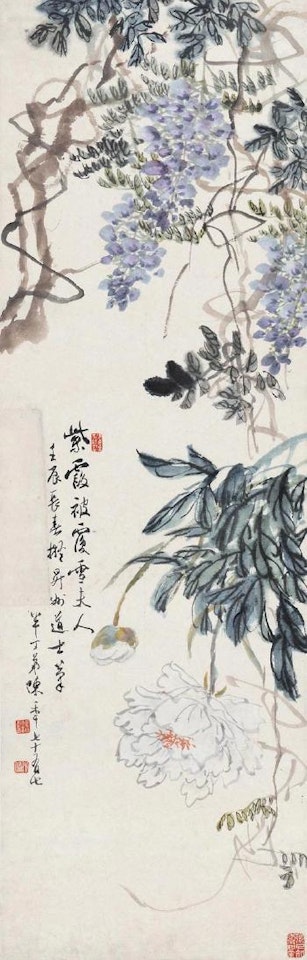 紫霞被覆雪夫人
壬辰長春擬昇州道士筆
半丁弟陳年七十有七